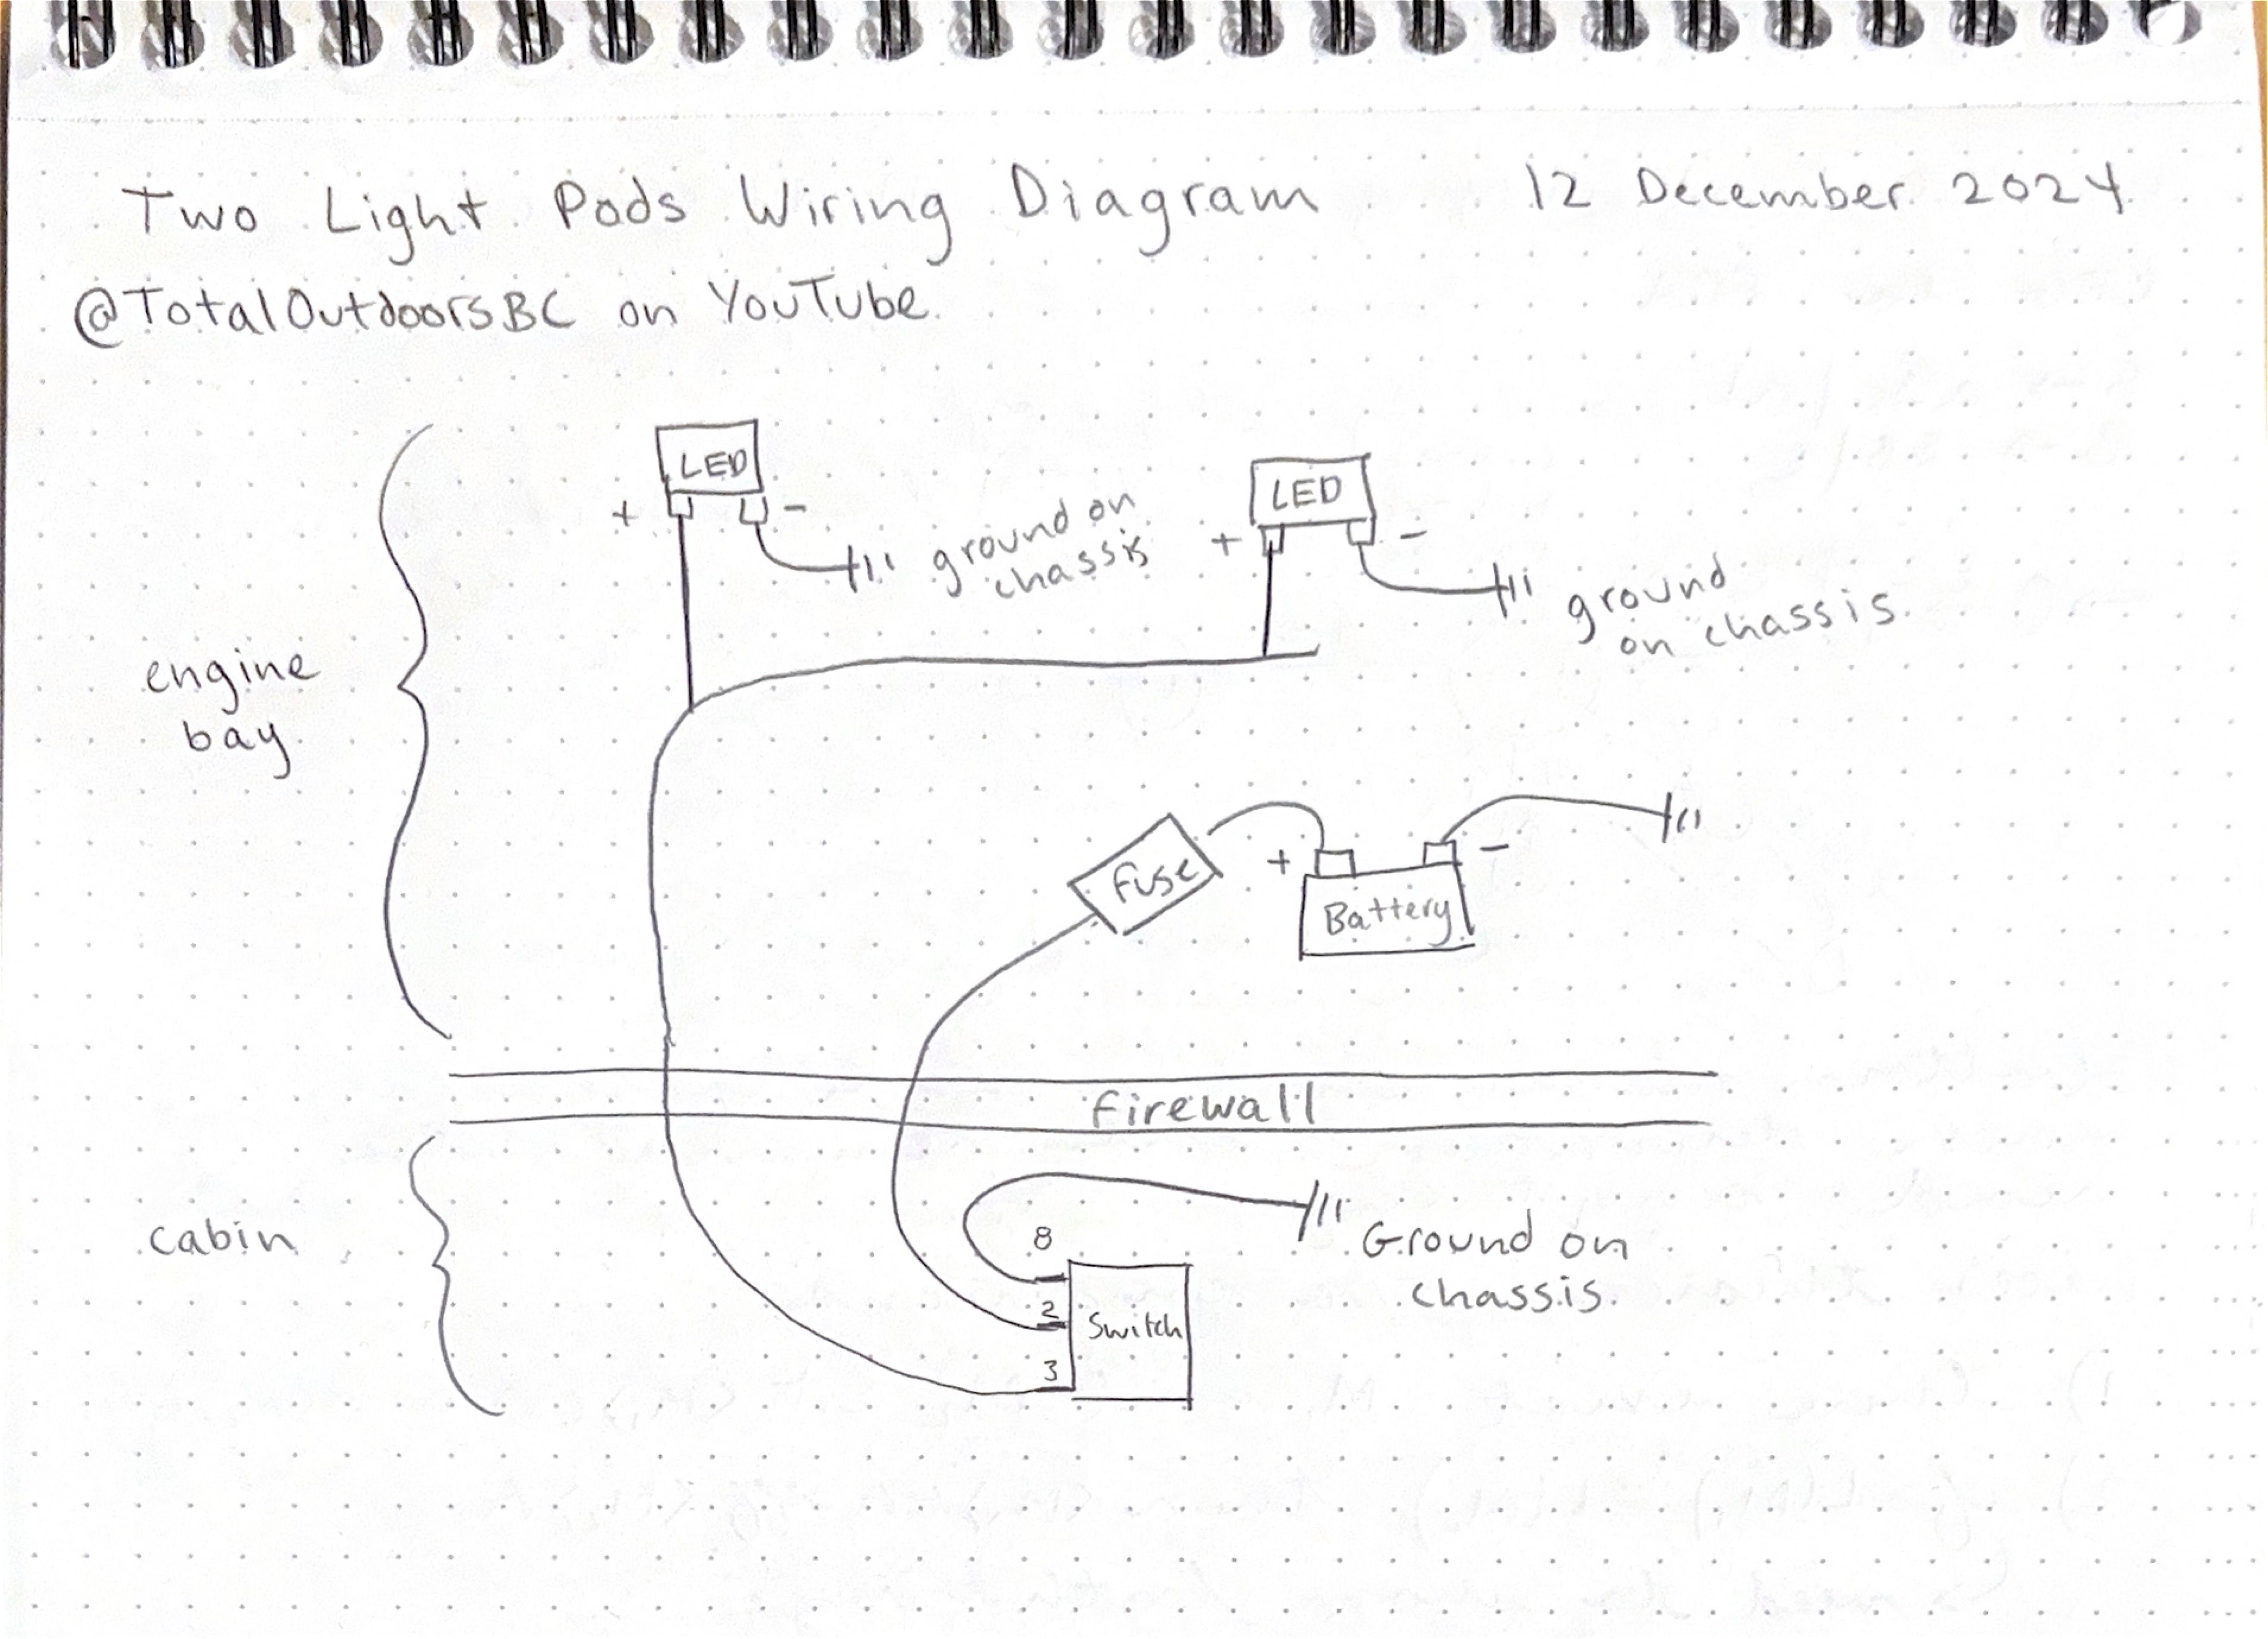 Two Light Pods Wiring Diagram 12 December 2024
@TotalOutdoorsBC on YouTube
LED
+ -
ground on
chassis
LED
+ -
ground
on chassis
engine
bay
fuse
+ -
Battery
firewall
cabin
8
Ground on
chassis
2
Switch
3